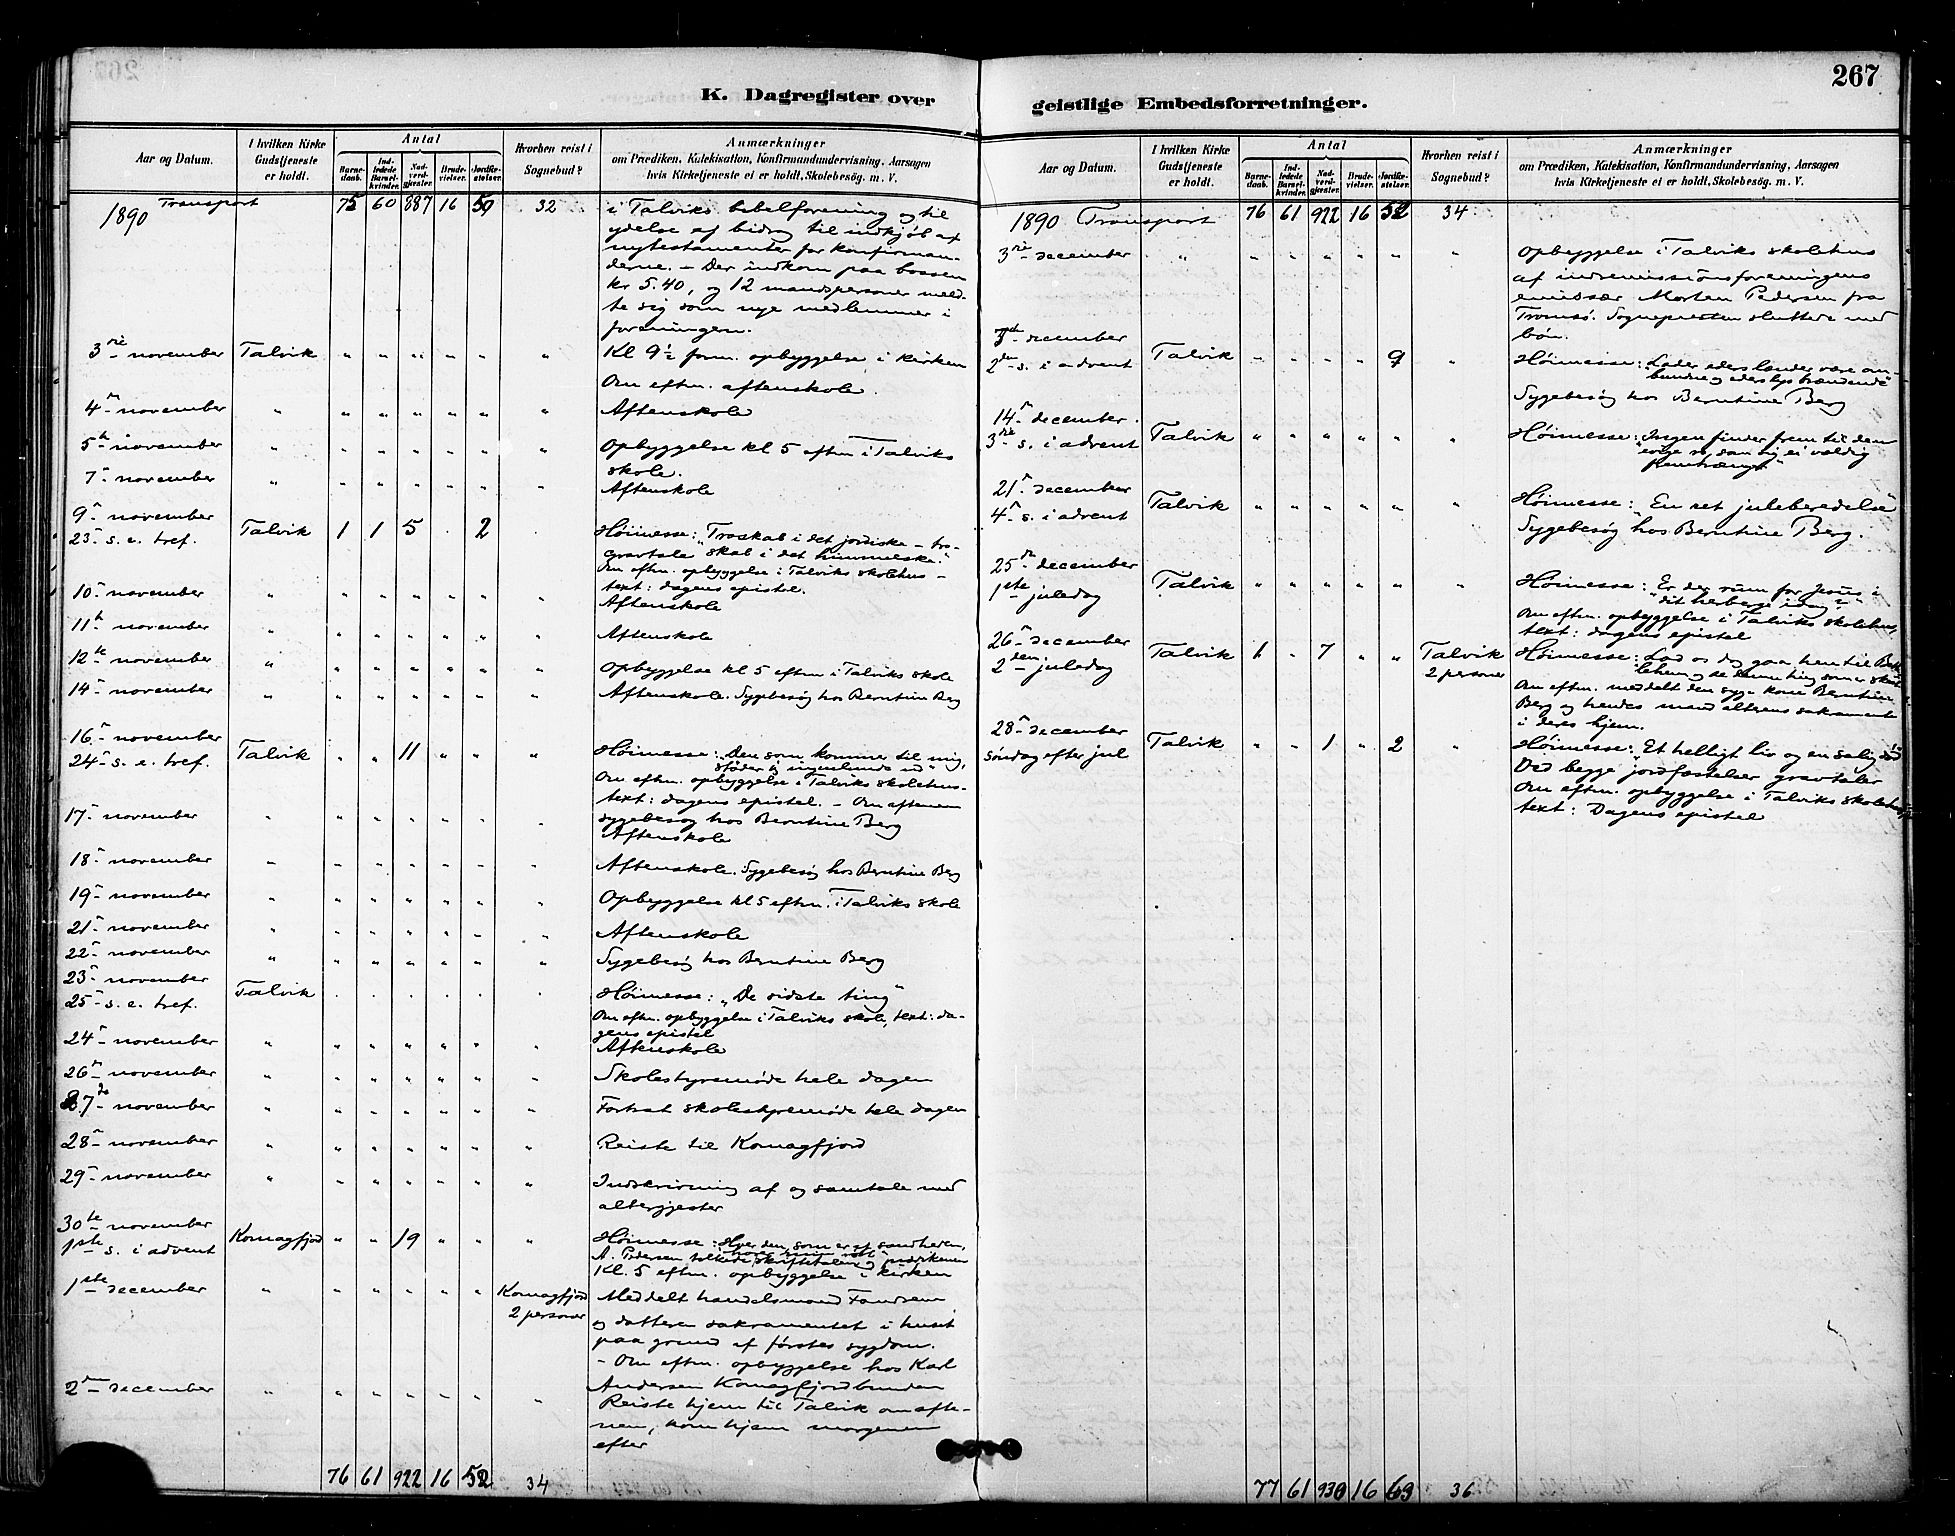 267
K. Dagregister over
geistlige Embedsforretninger.
Aar og Datum.
I hvilken Kirke Gudstjeneste er holdt.
Antal
Barnedaab.
Indledede Barselkvinder.
Nadverdgjester.
Brudevielser.
Jordfæstelser.
Hvorhen reist i Sognebud?
Anmærkninger
om Prædiken, Katekisation, Konfirmandundervisning, Aarsagen
hvis Kirketjeneste ei er holdt, Skolebesøg. m. V.
1890 Transport 75 60 887 16 50 32 i Talviks bibelforening og til
ydelse af bidrag til indkjøb af
nytestamenter for konfirman-
derne. - Der indkom paa bøssen
kr 5.40, og 12 mandspersoner meld-
te sig som nye medlemmer i
foreningen.
3die november Talvik " " " " " " Kl 9½ form. opbyggelse i kirken
Om eftm. aftenskole.
4de november " " " " " " " Aftenskole
5te november " " " " " " " Opbyggelse kl 5 eftm i Talviks
skole.
7de november " " " " " " " Aftenskole
9de november
23de s. e. tref. Talvik 1 1 5 . 2 . Høimesse: "Troskab i det jordiske - tro-
gravtale skab i det himmelske."
Om eftm. opbyggelse i Talviks skolehus -
text: dagens epistel.
10de november " " " " " " " Aftenskole
11te november " " " " " " " Aftenskole
12te november " " " " " " " Opbyggelse kl 5 eftm i Talviks skole
14de november " " " " " " " Aftenskole. Sygebesøg hos Berntine Berg
16de november
24de s. e. tref. Talvik " " 11 " " " Høimesse: "Den som kommer til mig,
støder jeg ingenlunde ud"
Om eftm. opbyggelse i Talviks skolehus -
text: dagens epistel. - Om aftenen
sygebesøg hos Berntine Berg
17de november " " " " " " " Aftenskole
18de november " " " " " " " Aftenskole. Sygebesøg hos Berntine Berg
19de november " " " " " " " Opbyggelse kl 5 eftm. i Talviks skole
21de november " " " " " " " Aftenskole
22de november " " " " " " " Sygebesøg hos Berntine Berg
23de november
25de s. e. tref. Talvik . . . . . . Høimesse: "De sidste ting"
Om eftm. opbyggelse i Talviks skole, text: da-
gens epistel
24de november " " " " " " " Aftenskole
26de november " " " " " " " Skolestyremøde hele dagen
27de november " " " " " " " Fortsat skolestyremøde hele dagen
28de november " " " " " " " Reiste til Komagfjord
29de november " " " " " " " Indskrivning af og samtale med
altergjester
30te november
1ste s. i advent Komagfjord " " 19 " " " Høimesse: Hver den, som er af sandheden,
hører min røst"
A. Pedersen tolkede skriftetalen og prædikenen
Kl. 5 eftm. opbyggelse i kirken
1ste december " " " " " " Komagfjord
2 personer Meddelt handelsmand
og datteren sakramentet i huset
paa grund af førstes sygdom.
- Om eftm. opbyggelse hos Karl
Andersen Komagfjordbunden
2den december " " " " " " " Reiste hjem til Talvik om afte-
nen, kom hjem morgenen
efter
76 61 922 16 52 34
Aar og Datum.
I hvilken Kirke Gudstjeneste er holdt.
Antal
Barnedaab.
Indledede Barselkvinder.
Nadverdgjester.
Brudevielser.
Jordfæstelser.
Hvorhen reist i Sognebud?
Anmærkninger
om Prædiken, Katekisation, Konfirmandundervisning, Aarsagen
hvis Kirketjeneste ei er holdt, Skolebesøg. m. V.
1890 Transport 76 61 922 16 52 34
3die december " " " " " " " Opbyggelse i Talviks skolehus
af indremissionsforeningens
emissær Morten Pedersen fra
Tromsø. Sognepresten sluttede med
bøn.
7de december
2den s. i advent Talvik " " " " 9 " Høimesse: "Lader eders lænder være om-
bundne og eders lys brændende"
Sygebesøg hos Berntine Berg
14de december
3die s. i advent Talvik " " " " " " Høimesse: "Ingen finder frem til den
evige ro, som sig ei vældig
fremtrænge"
21de december
4de s. i advent Talvik " " " " " " Høimesse: "En ret juleberedelse"
Sygebesøg hos Berntine Berg.
25de december
1ste juledag Talvik " " " " " " Høimesse: "Er der rum for Jesus i
dit herberge idag?"
Om eftm. opbyggelse i Talviks skolehus,
text: dagens epistel
26de december
2den juledag Talvik 1 " 7 " " Talvik
2 personer Høimesse: Lad os dog gaa hen til Beth-
lehem og se denne ting som er skeet
Om eftm. meddelt den syge kone Berntine
Berg og hendes mand alterens sakramente
i deres hjem.
28de december
Søndag efter jul Talvik " " 1 " 2 " Høimesse: "Et helligt liv og en salig død"
Ved begge jordfæstelser gravtaler
Om eftm. opbyggelse i Talviks skolehus,
text: Dagens epistel
77 61 930 16 63 36